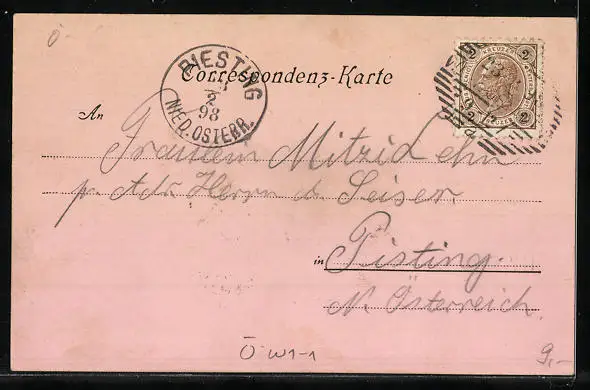 Ö
PIESTING
2
98
NIED. OSTERR.
Correspondenz-Karte
2 KREUZER 2
2 2 2
An
Fräulein Mitzi Lehn
p. Adr. Herrn Seiser.
in Pisting.
N. Österreich.
Ö W1-1
9,-